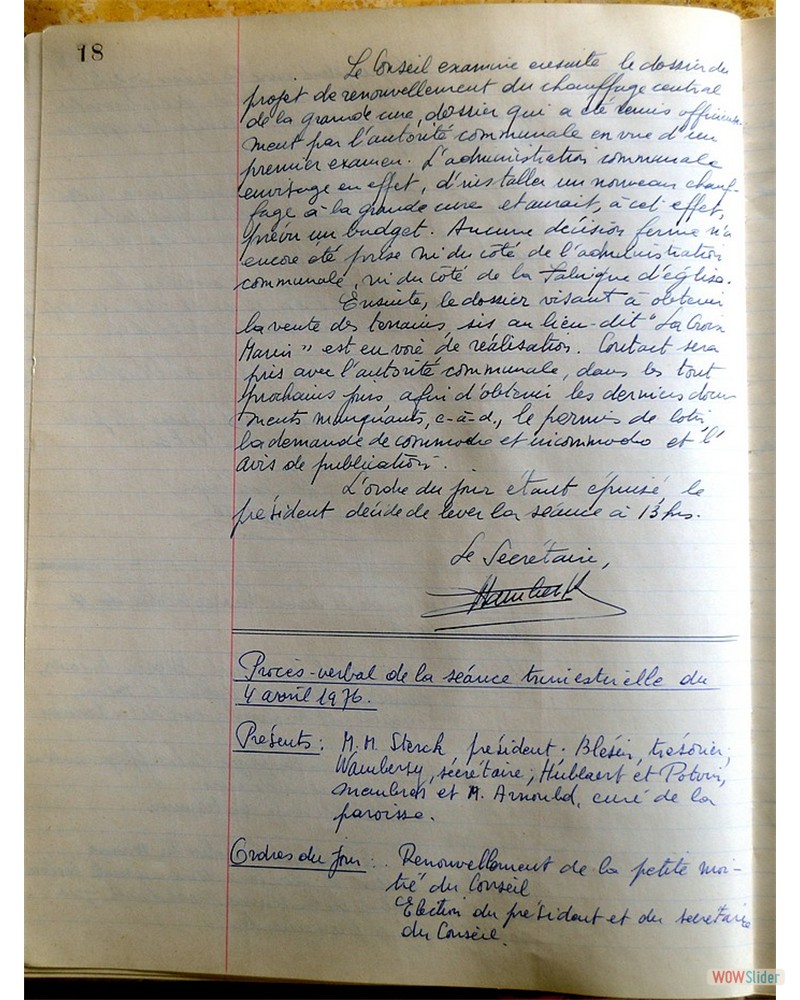 18
Le Conseil examine ensuite le dossier du
projet de renouvellement du chauffage central
de la grande cure, dossier qui a été remis officieuse-
ment par l'autorité communale en vue d'un
premier examen. L'administration communale
envisage en effet, d'installer un nouveau chauf-
fage à la grande cure et aurait, à cet effet,
prévu un budget. Aucune décision ferme n'a
encore été prise ni du côté de l'administration
communale, ni du côté de la Fabrique d'église.
Ensuite, le dossier visant à obtenir
la vente des terrains, sis au lieu-dit "La Croix
" est en voie de réalisation. Contact sera
pris avec l'autorité communale, dans les tout
prochains jours afin d'obtenir les derniers docu-
ments manquants, c-à-d., le permis de lotir,
la demande de commodo et incommodo et l'
avis de publication.
L'ordre du jour étant épuisé le
président décide de lever la séance à 13 hrs.
Le Secrétaire,
Procès-verbal de la séance trimestrielle du
4 avril 1976.
Présents : M.M. Sterck président. Blésin, trésorier;
Wambersy, secrétaire; Hublaert et Potvin,
membres et M. Arnould, curé de la
paroisse.
Ordres du jour : Renouvellement de la petite moi-
tié du Conseil
Election du président et du secrétaire
du Conseil.
WOWSlider